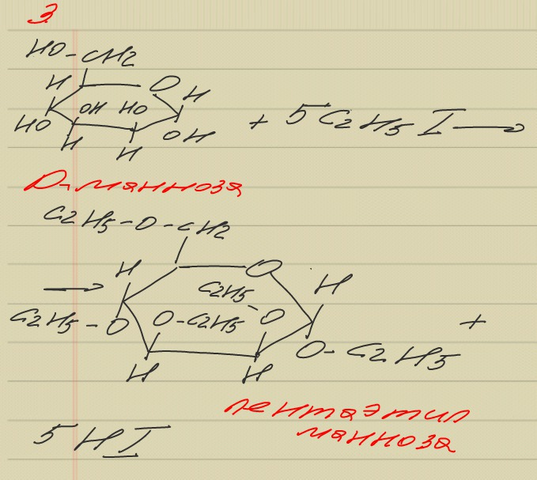 3
HO-CH2
H O H
OH HO
HO OH
H H
+ 5C2H5I →
D-манноза
C2H5-O-CH2
H O H
→ C2H5
C2H5-O O-C2H5 -O +
O-C2H5
H H
пентаэтил
манноза
5HI